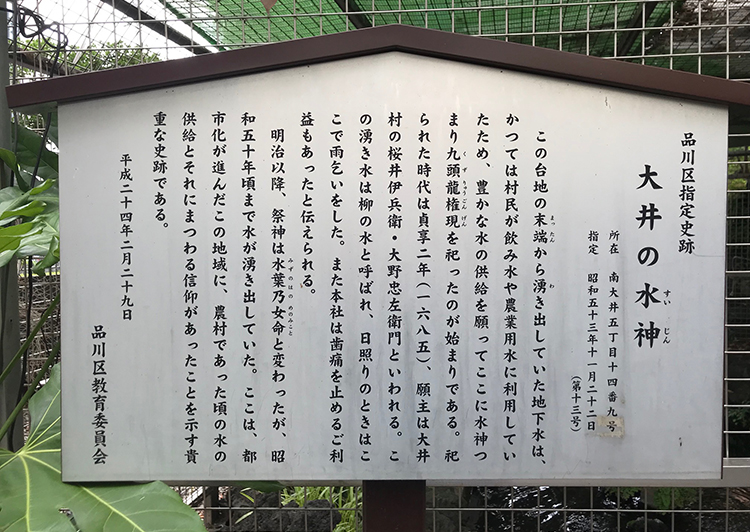 品川区指定史跡
大井の水神
すいじん
所在 南大井五丁目十四番九号
指定 昭和五十三年十一月二十二日
(第十三号)
この台地の末端から湧き出していた地下水は、
まったん わ
かつては村民が飲み水や農業用水に利用してい
たため、豊かな水の供給を願ってここに水神つ
まり九頭龍権現を祀ったのが始まりである。祀
くずりゅうごんげん
られた時代は貞享二年(一六八五)、願主は大井
村の桜井伊兵衛・大野忠左衛門といわれる。こ
の湧き水は柳の水と呼ばれ、日照りのときはこ
こで雨乞いをした。また本社は歯痛を止めるご利
益もあったと伝えられる。
明治以降、祭神は水葉乃女命と変わったが、昭
みずのはのめのみこと
和五十年頃まで水が湧き出していた。ここは、都
市化が進んだこの地域に、農村であった頃の水の
供給とそれにまつわる信仰があったことを示す貴
重な史跡である。
平成二十四年二月二十九日
品川区教育委員会